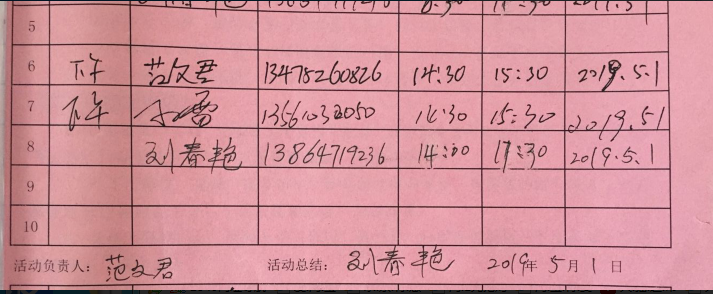 5
6 下午 范文君 13475260826 14:30 15:30 2019.5.1
7 下午 13561032050 14:30 15:30 2019.51
8 刘春艳 13864719236 14:00 17:30 2019.5.1
9
10
活动负责人: 范文君 活动总结: 刘春艳 2019年 5月 1日